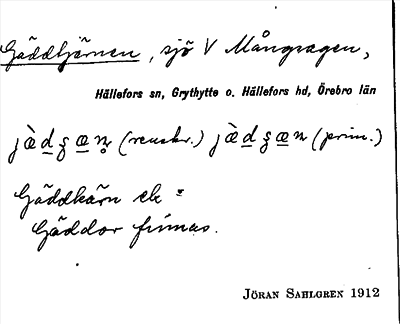 Gäddtjärnen, sjö V Mångsagen,
Hällefors sn, Grythytte o. Hällefors hd, Örebro län
(renskr.) (prim.)
Gäddkärn ek =
Gäddor finnas.
JÖRAN SAHLGREN 1912